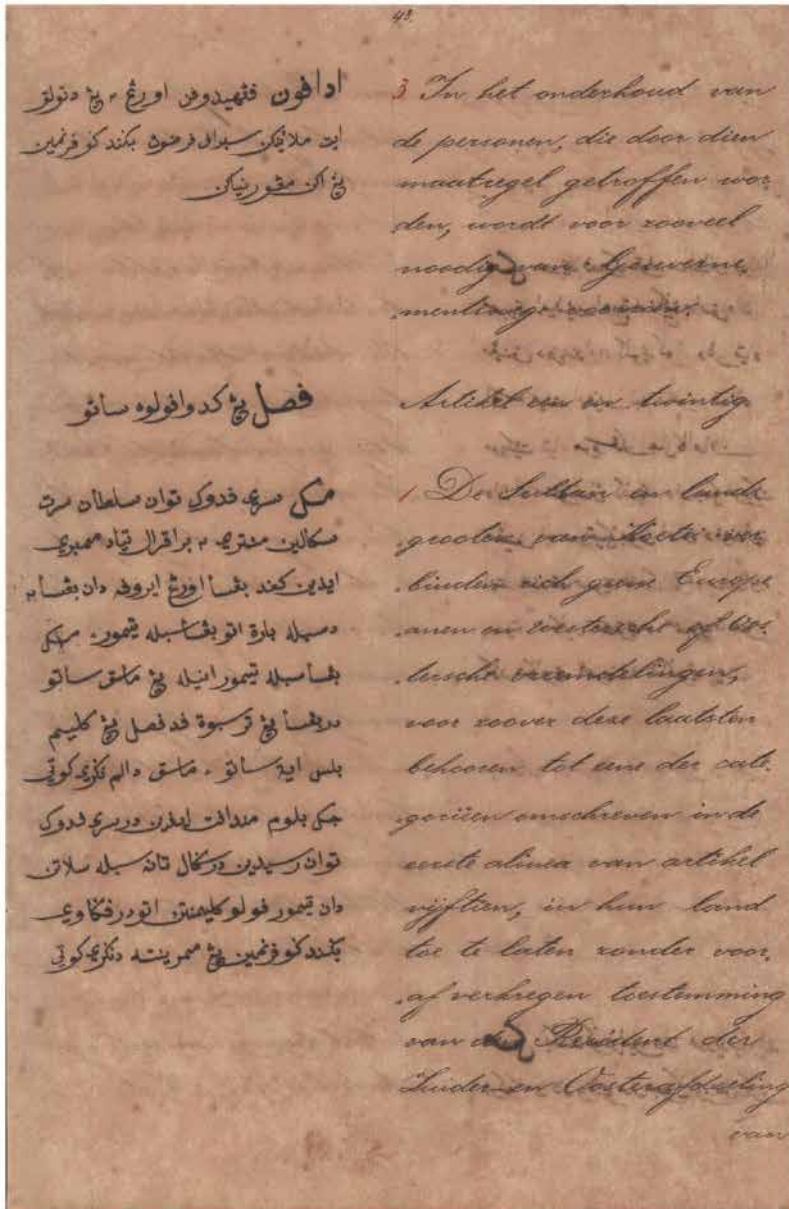 48.
ادافون فڠهيدوفن اورڠ ٢ يڠ دتولق
ايت ملاينكن سبراف فرضوڽ بكندكوفرنمين
يڠ اكن مڠورنياكن
فصل يڠ كدوافولوه ساتو
مك سري فدوك توان سلطان سرت
سكالين منتري ٢ براقرال تياد ممبري
ايذين كفد بڠسا اورڠ ايروفه دان بڠسا ٢
دسبله بارة اتو بڠسا سبله تيمور. مك
بڠسا سبله تيمور اينيله يڠ ماسق ساتو
در بڠسا يڠ ترسبوة فد فصل يڠ كليم
بلس اية ساتو. ماسق دالم نكري كوتي
جك بلوم مندافت ايذين در سري فدوك
توان رسيدين در سكال تانه سبله سلاتن
دان تيمور فولو كليمنتن اتو در فڠكاوي
بكندكوفرنمين يڠ ممرينته دنكري كوتي
3 In het onderhoud van
de personen, die door dien
maatregel getroffen wor-
den, wordt voor zooveel
noodig van Gouverne-
mentswege voorzien.
Artikel een en twintig.
1 De Sultan en lands-
grooten van Koetei ver-
binden zich geene Europe-
anen en westersche of Oos-
tersche vreemdelingen,
voor zoover deze laatsten
behooren tot eene der cate-
goriëen omschreven in de
eerste alinea van artikel
vijftien, in hun land
toe te laten zonder voor-
af verkregen toestemming
van den Resident der
Zuider- en Oosterafdeeling
van